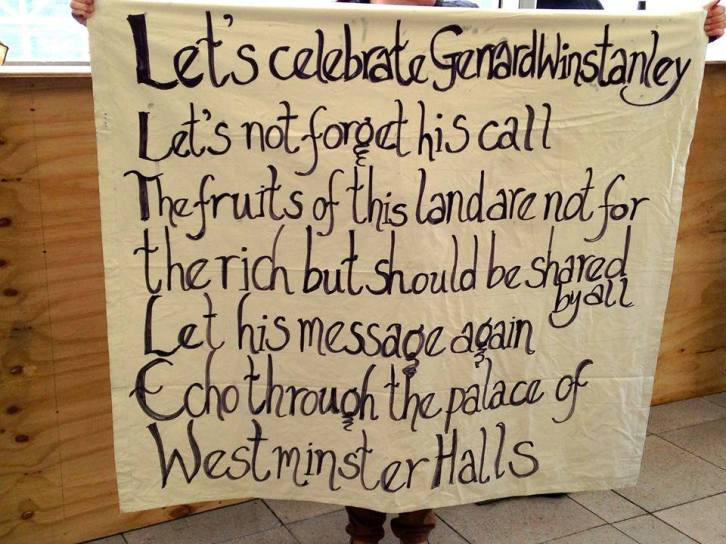 Let's celebrate Gerrard Winstanley
Let's not forget his call
The fruits of this land are not for
the rich but should be shared
by all
Let his message again
Echo through the palace of
Westminster Halls